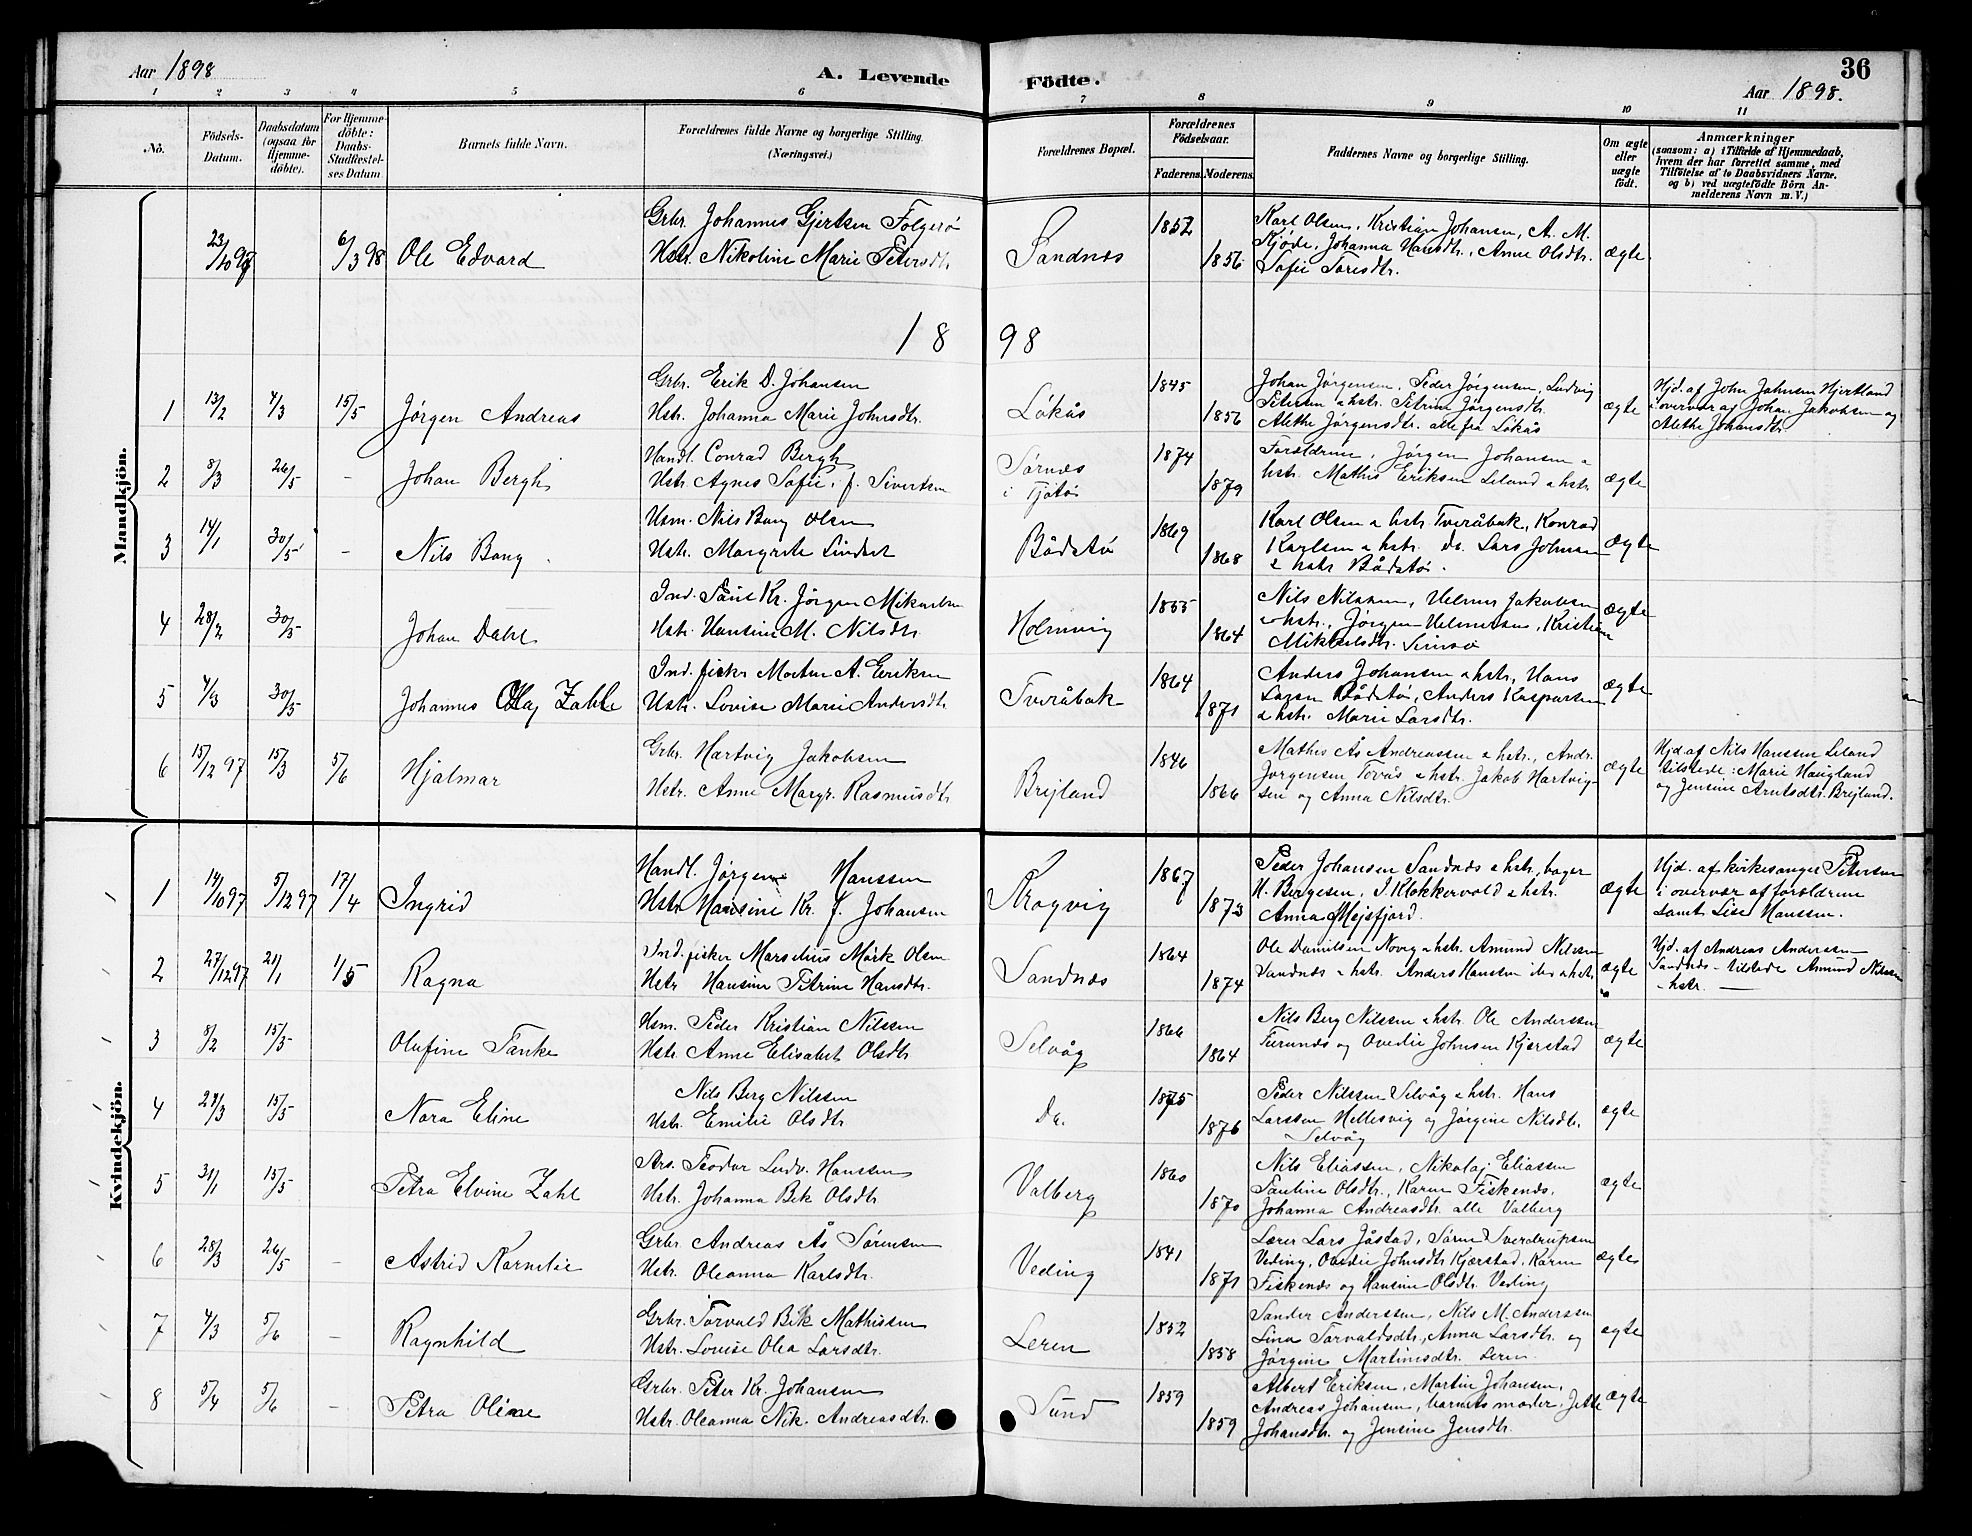 Aar 1898 A. Levende Födte. 36
Aar 1898.
1 2 3 4 5 6 7 8 9 10 11
No.
Födsels-Datum.
Daabsdatum (ogsaa for Hjemme-döbte).
For Hjemme-döbte: Daabs-Stadfæstel-ses Datum
Barnets fulde Navn.
Forældrenes fulde Navne og borgerlige Stilling.
(Næringsvei.)
Forældrenes Bopæl.
Forældrenes Födselsaar.
Faderens. Moderens.
Faddernes Navne og borgerlige Stilling.
Om ægte eller uægte födt.
Anmærkninger
(saasom: a) i Tilfælde af Hjemmedaab, hvem der har forrettet samme, med Tilföielse af to Daabsvidners Navne, og b) ved uægtefödte Börn An-melderens Navn m. V.)
Mandkjön.
23/10 97 6/3 98 Ole Edvard
Grbr. Johannes Gjertsen Folgerø
Hstr. Nikoline Marie Petersdtr.
Sandnes 1852 1856
Karl Olsen, Kristian Johansen, A. M.
Kjöde, Johanna Hansdtr., Anne Olsdtr.
Sofie Toresdtr.
ægte
1898
1 13/2 4/3 15/5 Jørgen Andreas
Grbr. Erik D. Johansen
Hstr. Johanna Marie Johnsdtr.
Løkås 1845 1856
Johan Jørgensen, Peder Jørgensen, Ludvig
Petersen & hstr. Petrine Jørgensdtr.
Alethe Jørgensdtr. alle fra Løkås
ægte
Hjd. af John Johnsen Hjertland
i overvær af Johan Jakobsen og
Alethe Johansdtr.
2 8/3 26/5 - Johan Bergh
Handl. Conrad Bergh
Hstr. Agnes Sofie, f. Sivertsen
Sørnes
i Tjøtø
1874 1879
Forældrene, Jørgen Johansen &
hstr. Mathis Eriksen Leland & hstr.
ægte
3 14/1 30/5 - Nils Bang
Hsm. Nils Bang Olsen
Hstr. Margrete Lindset
Bådstø 1869 1868
Karl Olsen & hstr. Tveråbak, Konrad
Karlsen & hstr. do. Lars Johnsen
& hstr. Bådstø.
ægte
4 28/2 30/5 Johan Dahl
Ind. Paul Kr. Jørgen Mikkelsen
Hstr. Hansine M. Nilsdtr.
Holmvig 1855 1864
Nils Nilssen, Helmer Jakobsen
& hstr., Jørgen Helmersen, Kristian
Mikkelsdtr.
ægte
5 4/3 30/5 Johannes Olaj Zahl
Ind. fisker Morten A. Eriksen
Hstr. Lovise Marie Andersdtr.
Tveråbak 1864 1871
Anders Johansen & hstr., Hans
Larsen Bådstø, Anders Kaspersen
& hstr. Marie Larsdtr.
ægte
6 15/12 97 15/3 5/6 Hjalmar
Grbr. Hartvig Jakobsen
Hstr. Anne Margr. Rasmusdtr.
Brejland 1846 1866
Mathis Ås Andreassen & hstr., Andr.
Jørgensen Tovås & hstr. Jakob Hartvig-
sen og Anna Nilsdtr.
ægte
Hjd. af Nils Hanssen Leland
tilstede: Marie Haugland
og Jensine Arntsdtr. Brejland.
Kvindekjön.
1 14/10 97 5/12 97 17/4 Ingrid
Handl. Jørgen Hanssen
Hstr. Hansine Kr. f. Johansen
Krogvig 1867 1873
Peder Johansen Sandnes & hstr., bager
H. Bergesen, J. Klokkervold & hstr.
Anna Mejsfjord.
ægte
Hjd. af kirkesanger Petersen
i overvær af forældrene
samt Lise Hanssen.
2 27/12 97 21/1 1/5 Ragna
Ind. fisker Marselius Mörk Olsen
Hstr. Hansine Petrine Hansdtr.
Sandnes 1864 1874
Ole Danielsen Novig & hstr. Amund Nilssen
Sandnes & hstr. Anders Hanssen ibd. & hstr.
ægte
Hjd. af Andreas Anderssen
Sandnes - tilstede Amund Nilssen
- hstr. -
3 8/2 15/5 Olufine Tanke
Hsm. Peder Kristian Nilssen
Hstr. Anne Elisabet Olsdtr.
Selvåg 1866 1864
Nils Berg Nilssen & hstr. Ole Anderssen
og Ovedie Johnsen Kjærstad
ægte
4 28/3 15/5 Nora Eline
Nils Berg Nilssen
Hstr. Emilie Olsdtr.
Do. 1875 1876
Peder Nilssen Selvåg & hstr. Hans
Larssen Hellesvig og Jørgine Nilsdtr.
Selvåg
ægte
5 31/1 15/5 Petra Elvine Zahl
Ars. Teodor Ludv. Hanssen
Hstr. Johanna Bek Olsdtr.
Valberg 1860 1870
Nils Eliassen, Nikolaj Eliassen
Pauline Olsdtr., Karen Fiskenes,
Johanna Andreasdtr. alle Valberg
ægte
6 28/3 26/5 - Astrid Kornelie
Grbr. Andreas Ås Sørensen
Hstr. Oleanna Karlsdtr.
Veding 1841 1871
Lærer Lars Jåstad, Søren Sverdrupsen
Veding, Ovedie Johnsdtr. Kjærstad, Karen
Fiskenes og Hansine Olsdtr. Veding
ægte
7 4/3 5/6 - Ragnhild
Grbr. Torvald Bek Mathissen
Hstr. Lovise Olea Larsdtr.
Leren 1852 1858
Sander Anderssen, Nils M. Anderssen
Lina Torvaldsdtr., Anna Larsdtr. og
Jørgine Martinesdtr. Leren
ægte
8 5/4 5/6 - Petra Oline
Grbr. Peter Kr. Johansen
Hstr. Oleanna Nik. Andreasdtr.
Sund 1859 1859
Albert Eriksen, Martin Johansen,
Andreas Johansen, barnets moder, Jette
Johansdtr. og Jensine Jensdtr.
ægte